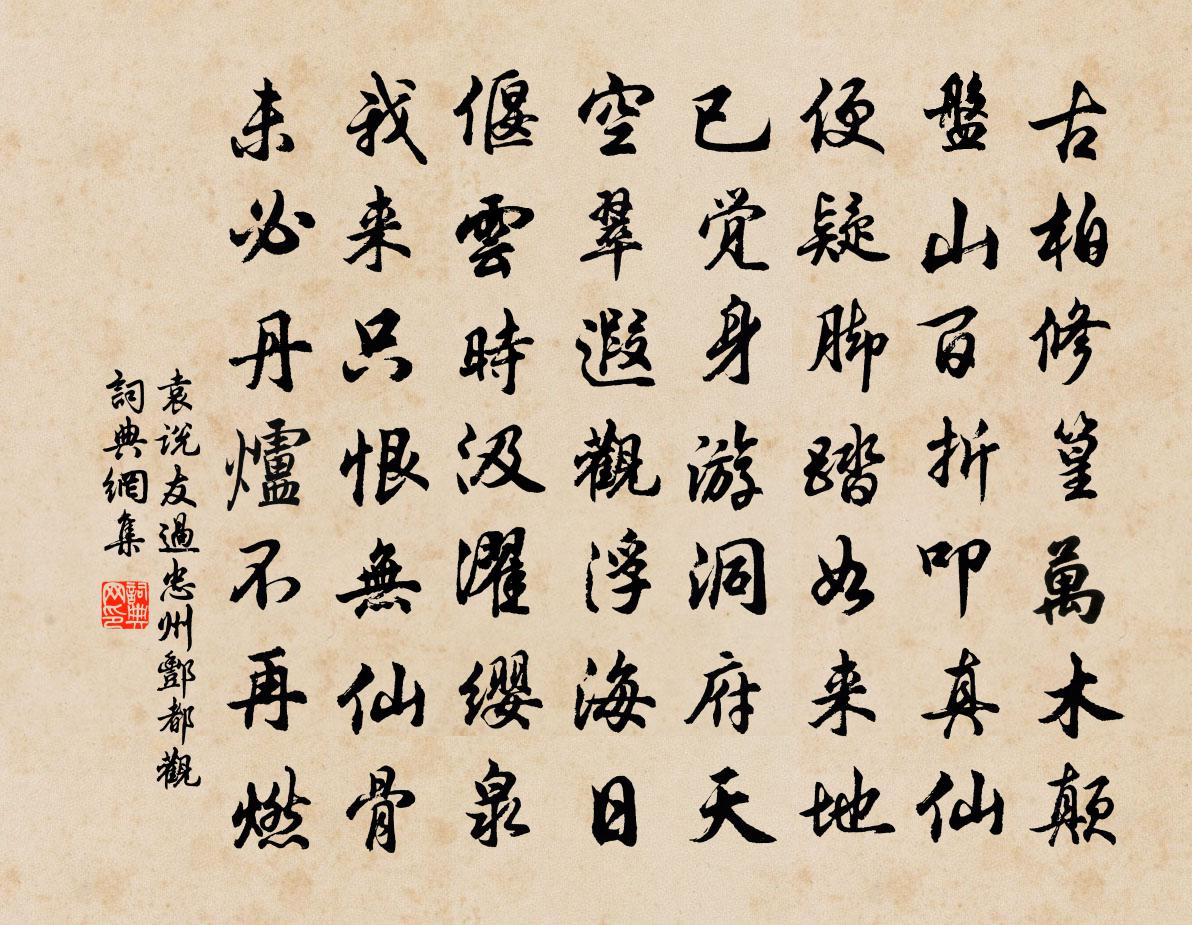 古柏修篁萬木顛
盤山百折叩真仙
便疑脚踏如来地
已觉身游洞府天
空翠遐觀浮海日
偃雲時汲濯纓泉
我来只恨無仙骨
未必丹爐不再燃
袁说友過忠州酆都觀
詞典網集
詞典网印